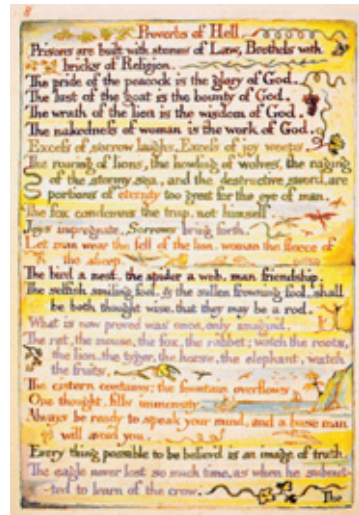 8
Proverbs of Hell.
Prisons are built with stones of Law, Brothels with
bricks of Religion.
The pride of the peacock is the glory of God.
The lust of the goat is the bounty of God.
The wrath of the lion is the wisdom of God.
The nakedness of woman is the work of God.
Excess of sorrow laughs. Excess of joy weeps.
The roaring of lions, the howling of wolves, the raging
of the stormy sea, and the destructive sword, are
portions of eternity too great for the eye of man.
The fox condemns the trap, not himself.
Joys impregnate. Sorrows bring forth.
Let man wear the fell of the lion, woman the fleece of
the sheep.
The bird a nest, the spider a web, man friendship.
The selfish smiling fool, & the sullen frowning fool, shall
be both thought wise, that they may be a rod.
What is now proved was once, only imagin'd.
The rat, the mouse, the fox, the rabbet; watch the roots,
the lion, the tyger, the horse, the elephant, watch
the fruits.
The cistern contains; the fountain overflows
One thought, fills immensity.
Always be ready to speak your mind, and a base man
will avoid you.
Every thing possible to be believ'd is an image of truth.
The eagle never lost so much time, as when he submit-
-ted to learn of the crow.
The